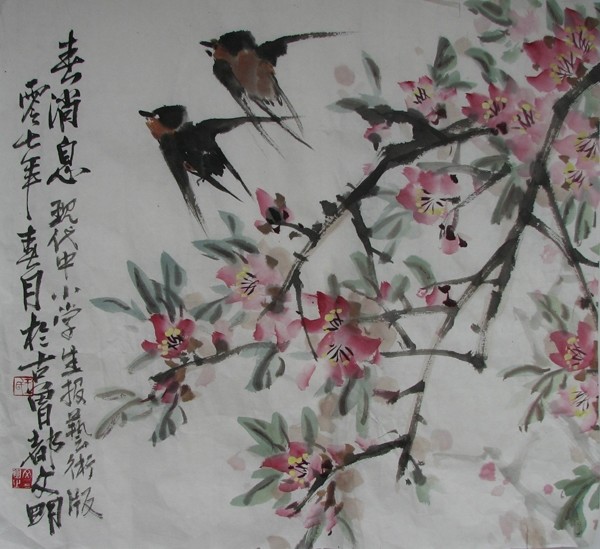 春消息 现代中小学生报藝術版
零七年春月於古曹都文明